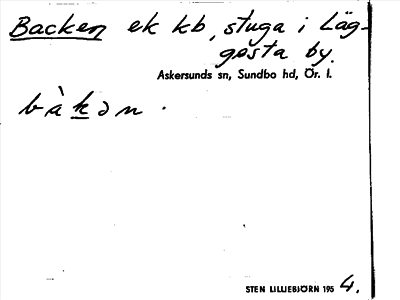 Backen ek kb, stuga i Läg-
gesta by.
Askersunds sn, Sundbo hd, Ör. l.
bàkən.
STEN LILLIEBJÖRN 1954.